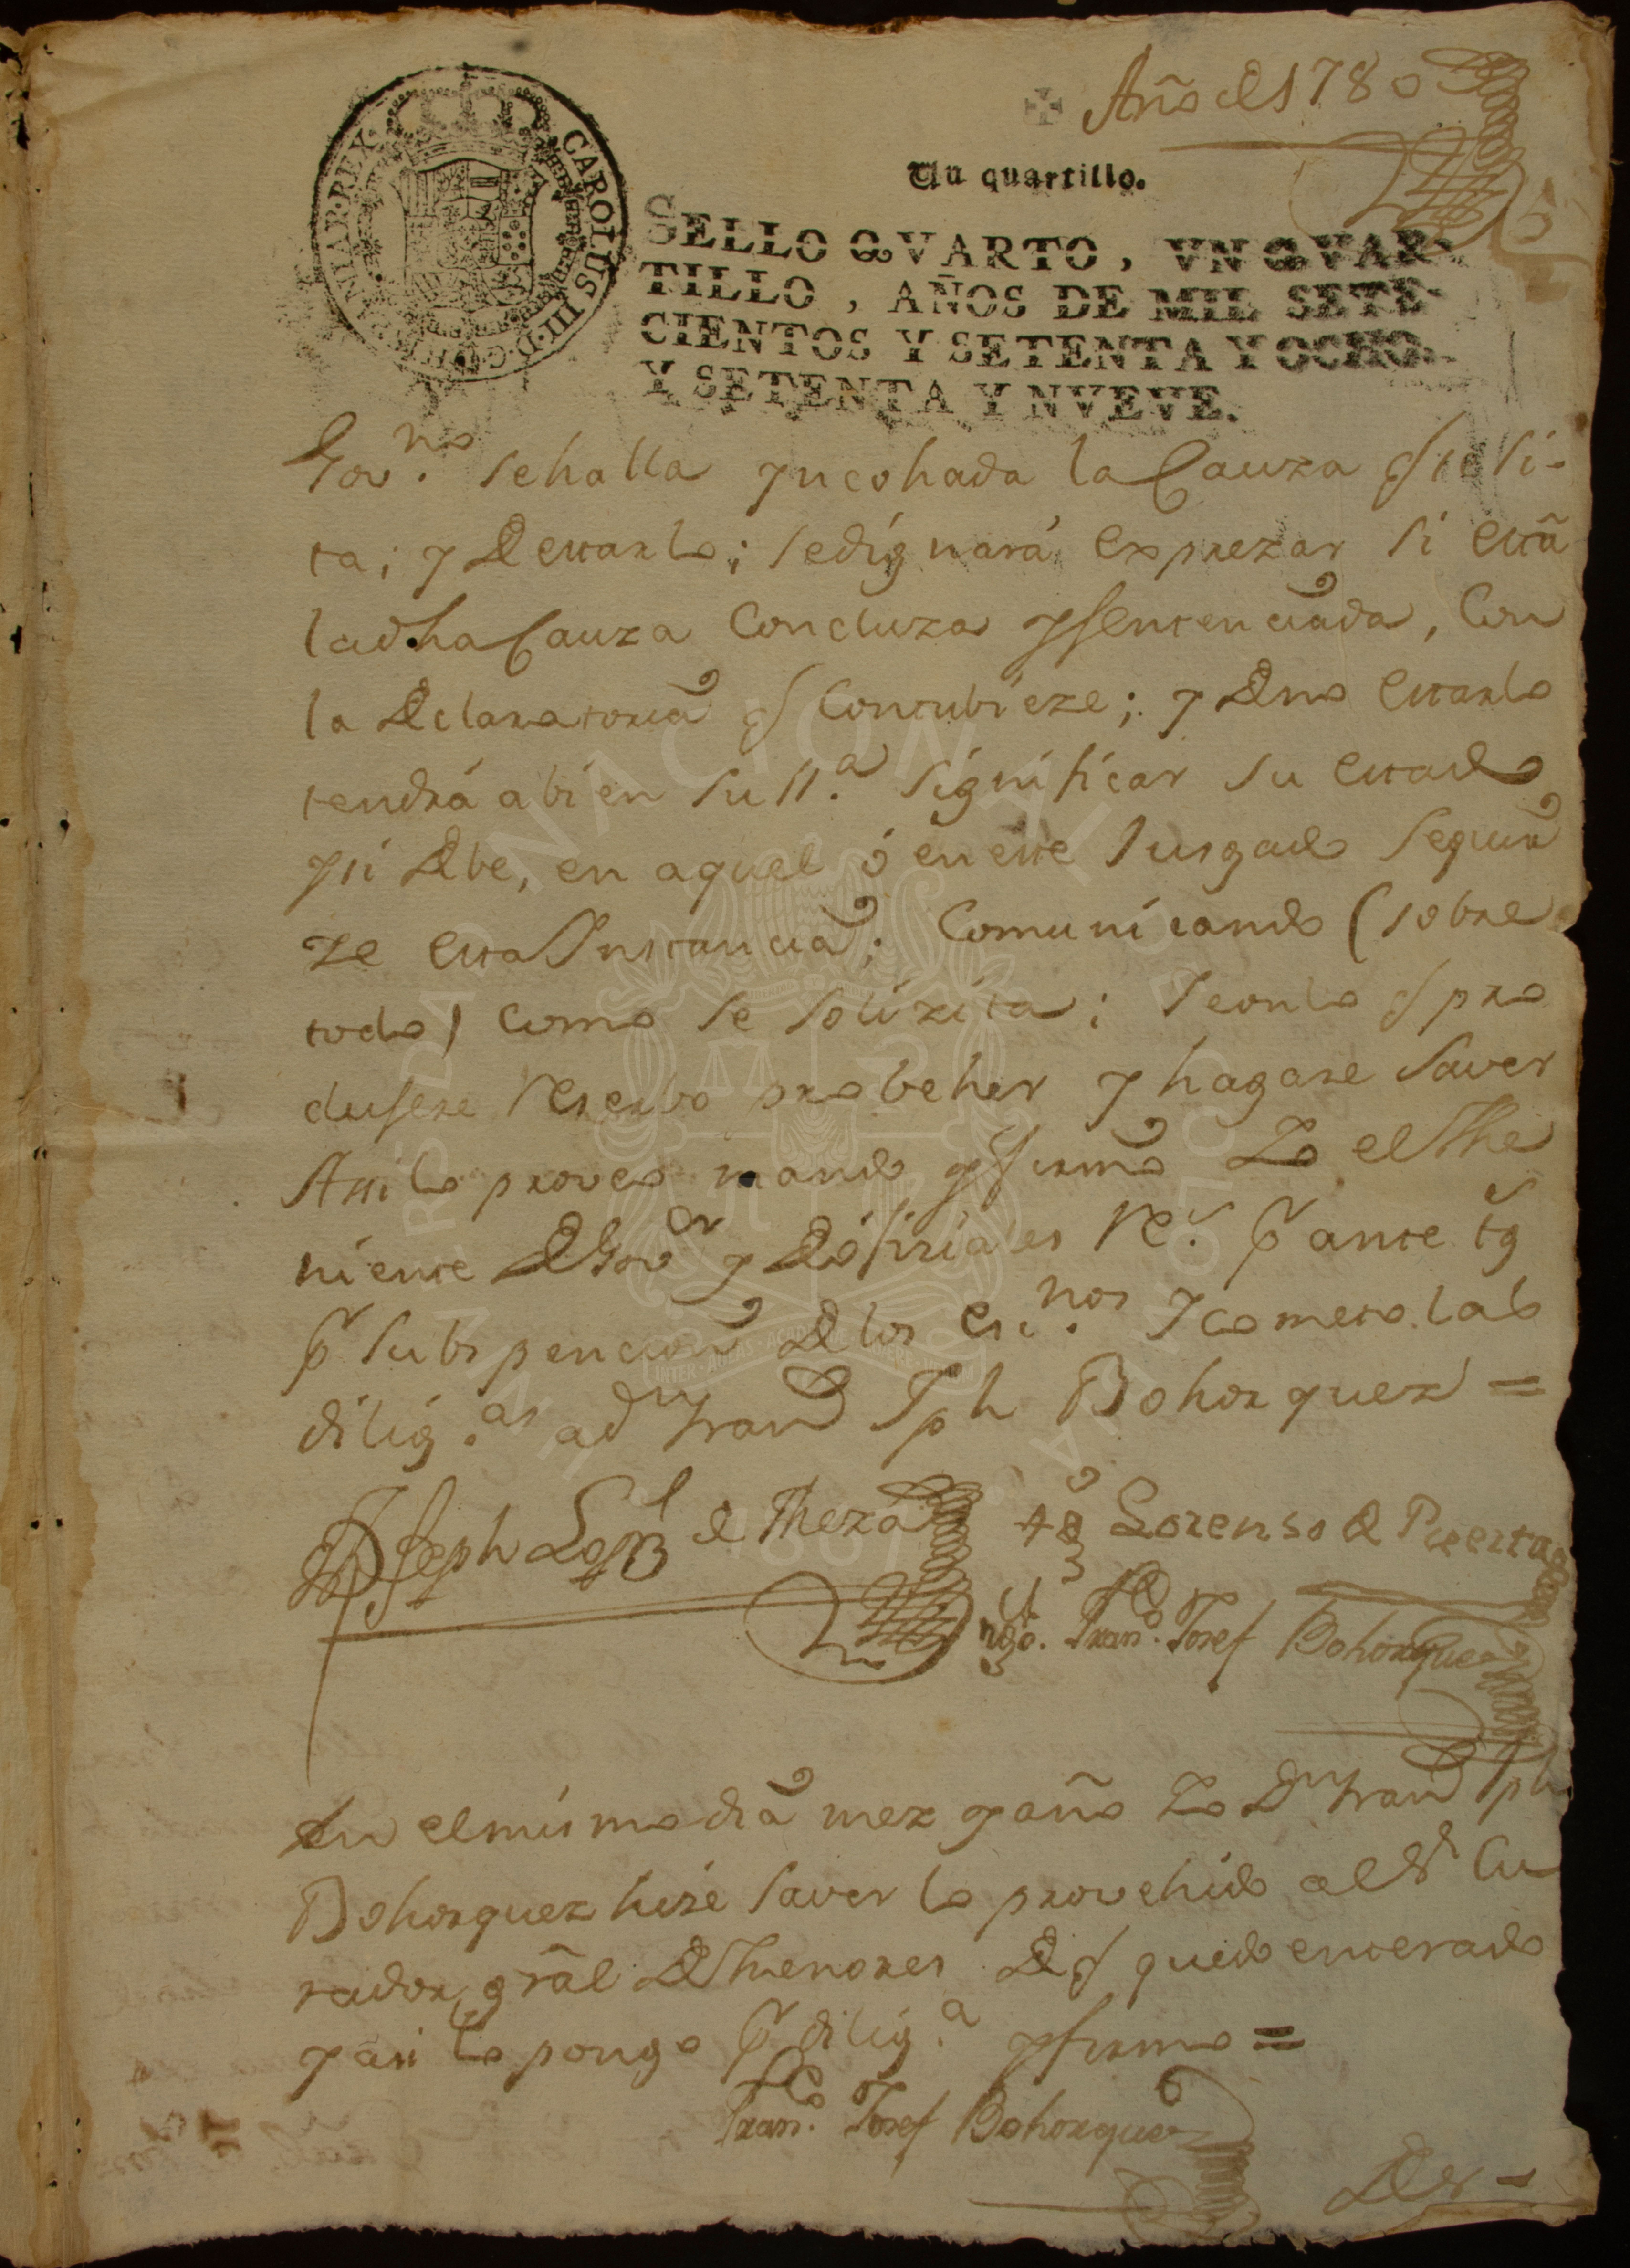 Año de 1780
Un quartillo.
5
CAROLUS III. D. G. HISPANIAR. REX.
SELLO QVARTO, VN QVAR-
TILLO, AÑOS DE MIL SETE-
CIENTOS Y SETENTA Y OCHO.
Y SETENTA Y NVEVE.
Gov.no se halla yncohada la Cauza q se si-
ta; y De estarlo; se dignará exprezar si está
la dha Cauza Concluza y sentenciada, Con
la Declaratoria q Contubieze; y De no estarlo
tendrá a bien su m.a significar su estado
y si Debe, en aquel ó en este Jusgado seguir
ze esta Instancia; Comunicando (sobre
todo) como se solizita; de todo q pro
dusere reserbo probeher y hagase saver
Assi lo proveo mando y firmo Yo el The
niente De Gov.or y De ofiziales R.s p ante tg
p subspencion De los es.nos y cometo las
dilig.as a dn Fran.co Jph Bohorquez =
Joseph Lopz de Meza tg Lorenso de Puerta
tgo. Fran.co Josef Bohorquez
En el mismo dia mez y año Yo Dn Fran.co Jph
Bohorquez hise saver lo provehido al Sr Cu
rador gral De Menores De q quedo enterado
y asi lo pongo p dilig.a y firmo =
Fran.co Josef Bohorquez
Der =
UNIVERSIDAD NACIONAL DE COLOMBIA
1867